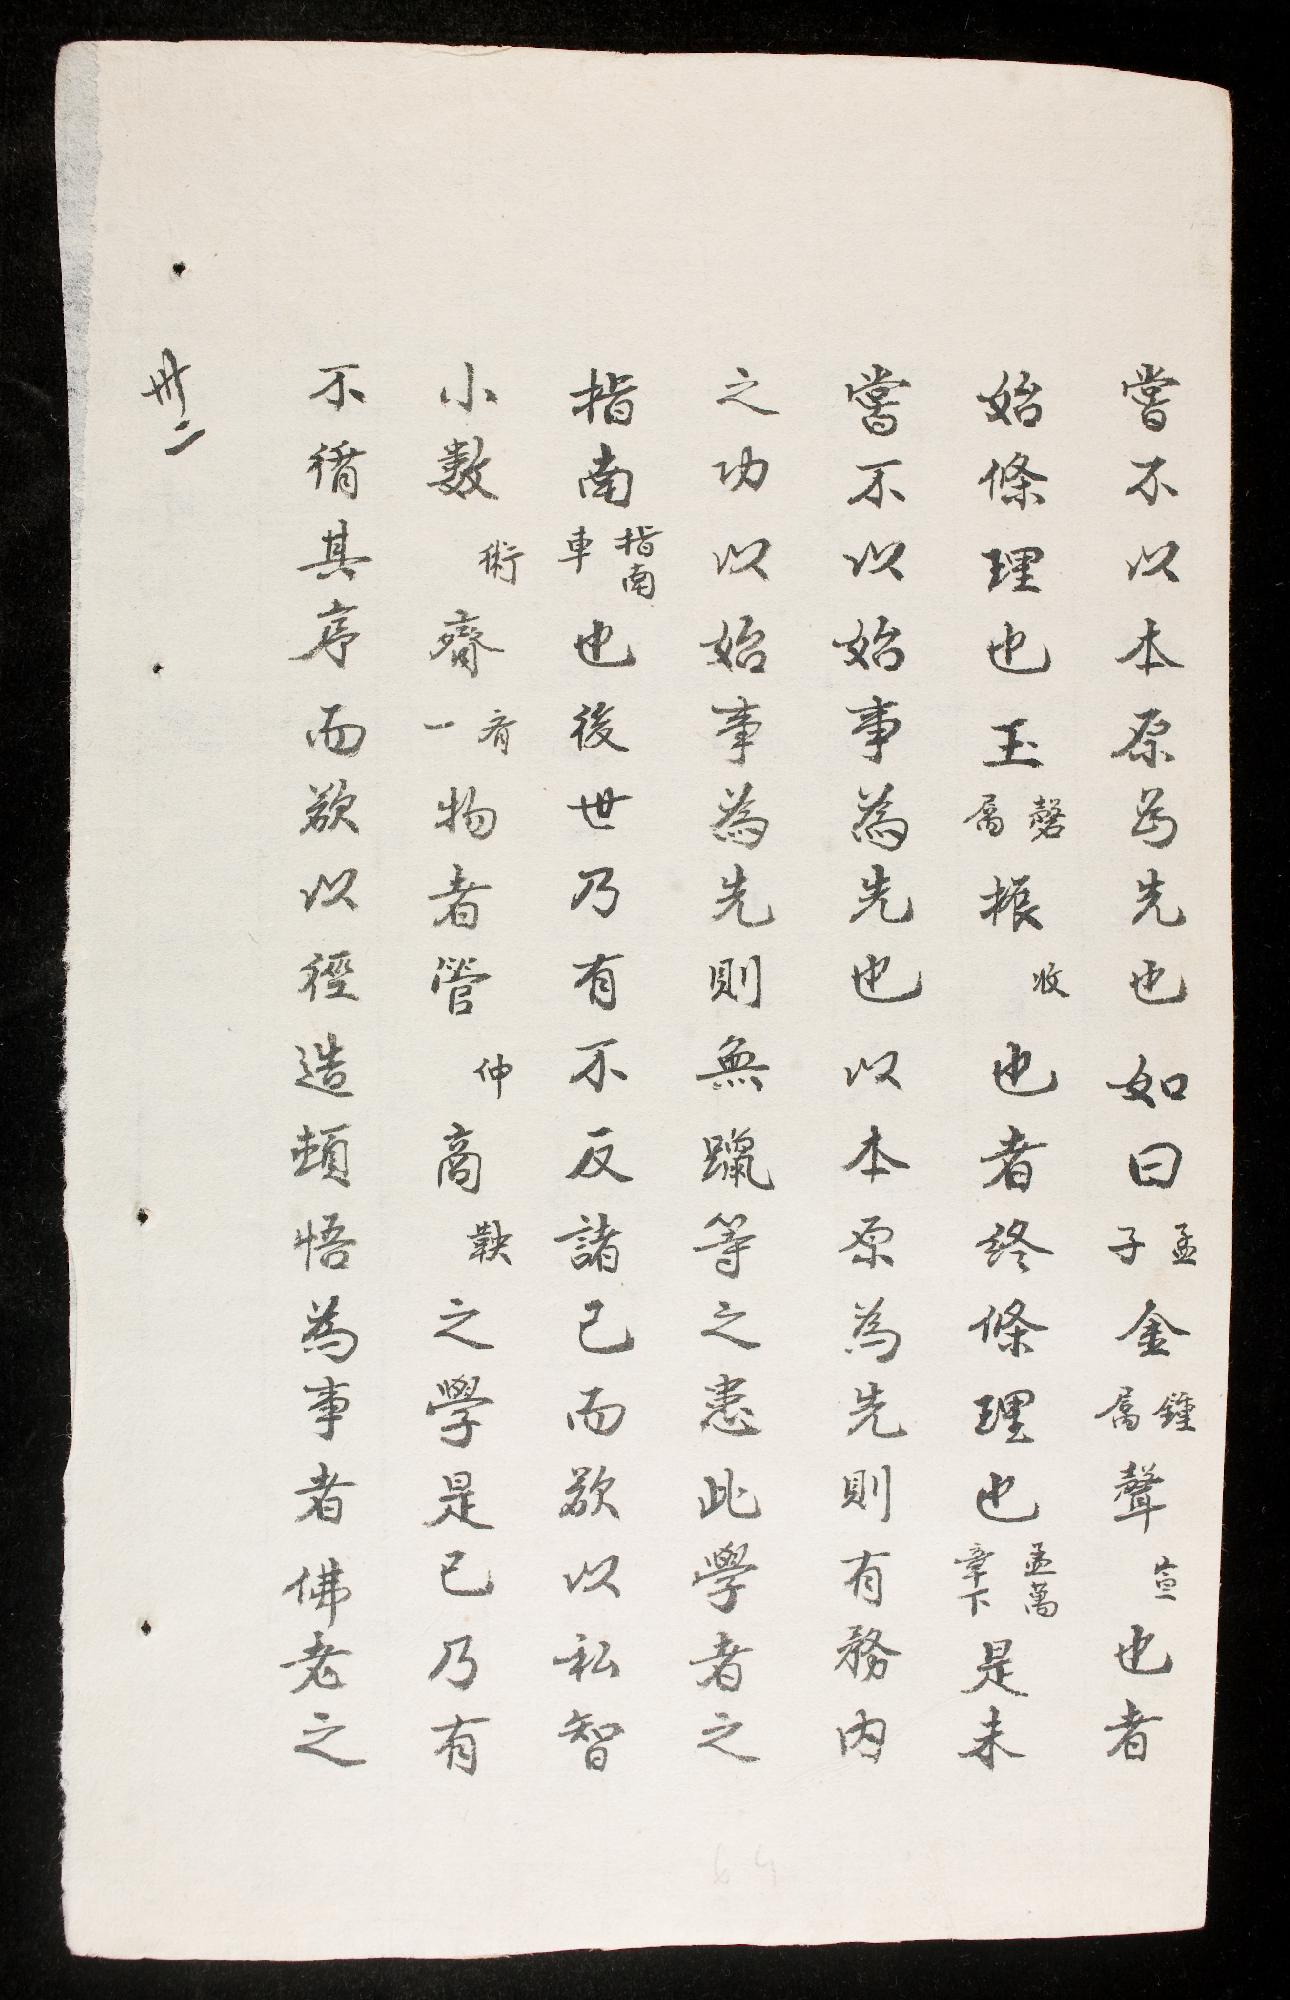 嘗不以本原為先也如曰孟子金鍾属聲宣也者
始條理也玉磬属振收也者終條理也孟萬章下是未
嘗不以始事為先也以本原為先則有務內
之功以始事為先則無躐等之患此學者之
指南指南車也後世乃有不反諸己而欲以私智
小數術齊有一物者管仲商鞅之學是已乃有
不循其序而欲以徑造頓悟為事者佛老之
卅二